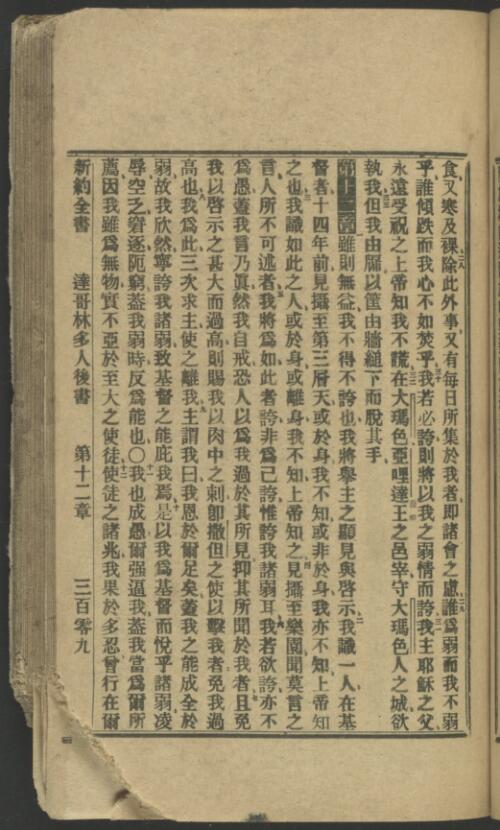 食又寒及裸除此外事又有每日所集於我者即諸會之慮誰爲弱而我不弱
乎誰傾跌而我心不如焚乎我若必誇則將以我之弱情而誇我主耶穌之父
永遠受祝之上帝知我不謊在大瑪色亞哩達王之邑宰守大瑪色人之城欲
執我但我由牖以筐由牆縋下而脫其手
第十二章雖則無益我不得不誇也我將舉主之顯見與啓示我識一人在基
督者十四年前見攝至第三層天或於身我不知或非於身我亦不知上帝知
之也我識如此之人或於身或離身我不知上帝知之見攝至樂園聞莫言之
言人所不可述者我將爲如此者誇非爲己誇惟誇我諸弱耳我若欲誇亦不
爲愚蓋我言乃眞然我自戒恐人以爲我過於其所見抑其所聞於我者且免
我以啓示之甚大而過高則賜我以肉中之刺卽撒但之使以擊我者免我過
高也我爲此三次求主使之離我主謂我曰我恩於爾足矣蓋我之能成全於
弱故我欣然寧誇我諸弱致基督之能庇我焉是以我爲基督而悅乎諸弱凌
辱空乏窘逐阨窮蓋我弱時反爲能也〇我也成愚爾强逼我蓋我當爲爾所
薦因我雖爲無物實不亞於至大之使徒使徒之諸兆我果於多忍曾行在爾
新約全書 達哥林多人後書 第十二章 三百零九